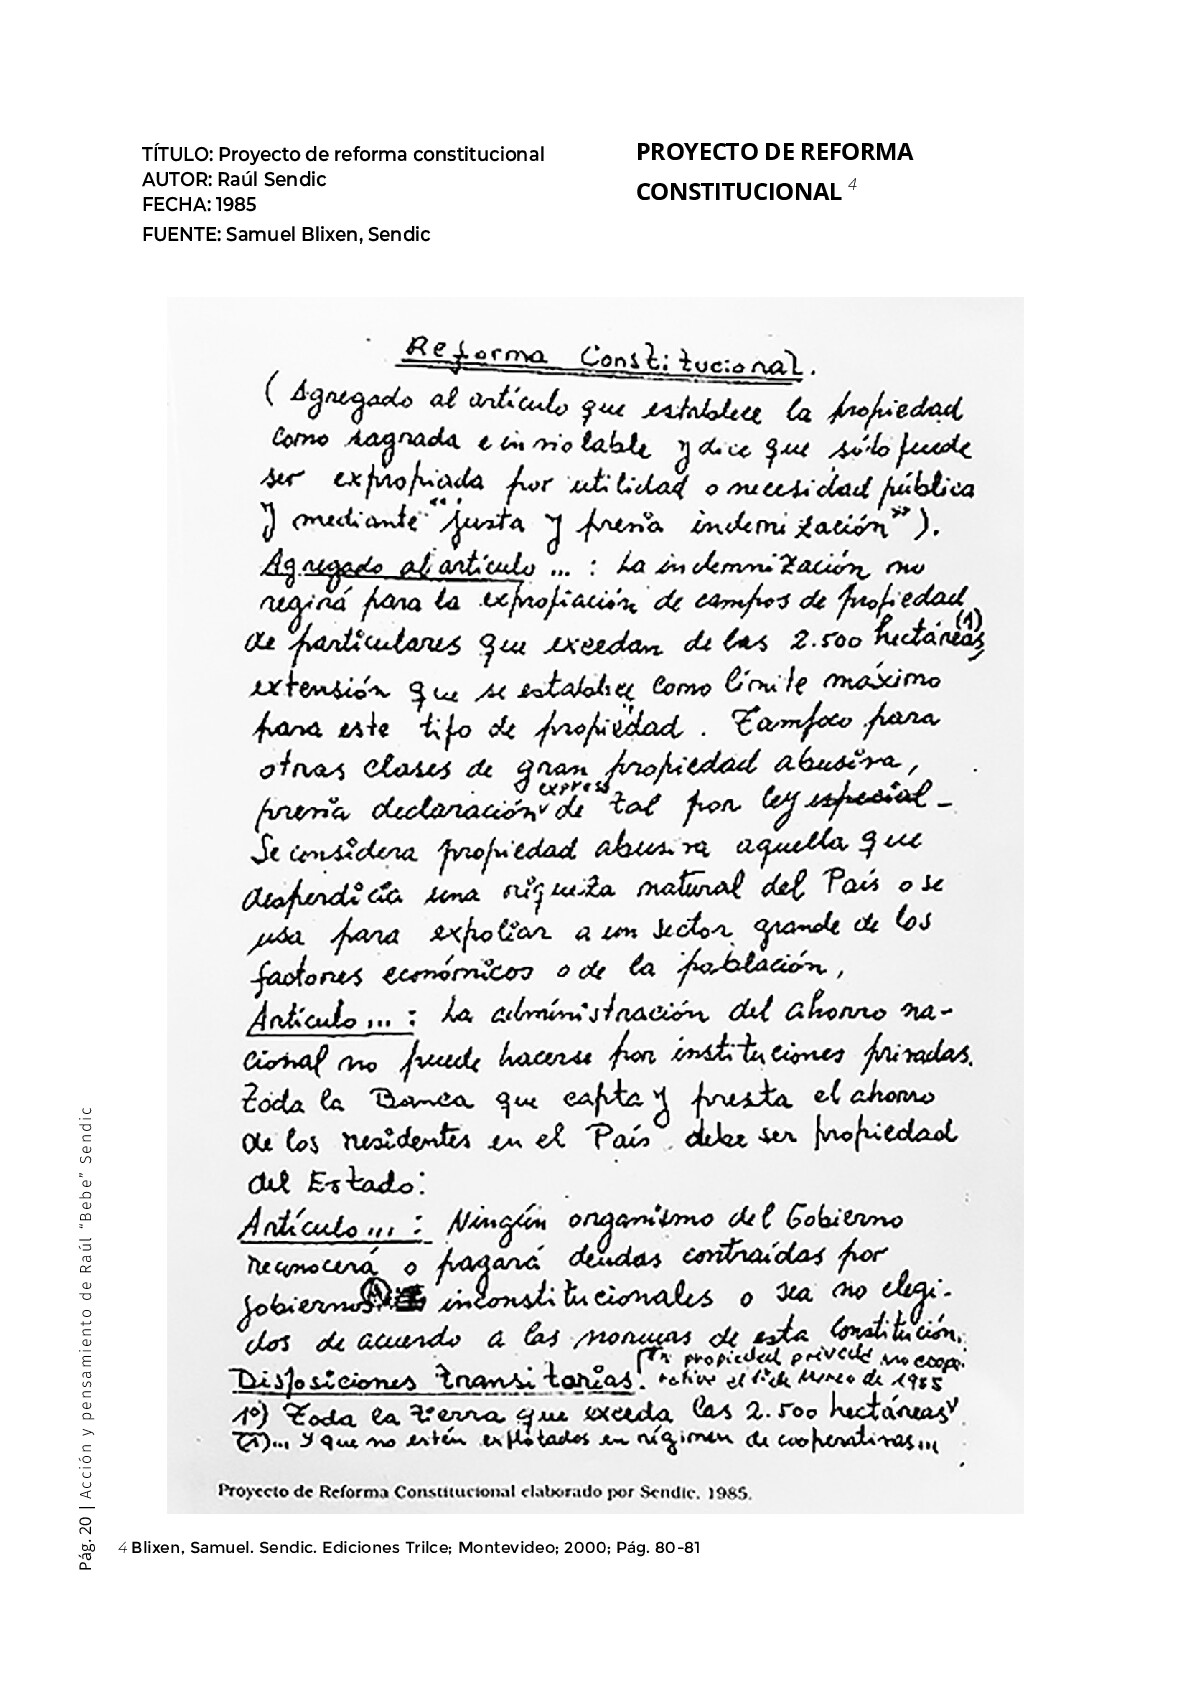 TÍTULO: Proyecto de reforma constitucional
AUTOR: Raúl Sendic
FECHA: 1985
FUENTE: Samuel Blixen, Sendic
PROYECTO DE REFORMA
CONSTITUCIONAL 4
Reforma Constitucional.
( Agregado al artículo que establece la propiedad
como sagrada e inviolable y dice que sólo puede
ser expropiada por utilidad o necesidad pública
y mediante "justa y previa indemización").
Agregado al artículo ... : La indemnización no
regirá para la expropiación de campos de propiedad
de particulares que excedan de las 2.500 hectáreas, (1)
extensión que se establece como límite máximo
para este tipo de propiedad. Tampoco para
otras clases de gran propiedad abusiva,
expresa
previa declaración de tal por ley especial-
Se considera propiedad abusiva aquella que
desperdicia una riqueza natural del País o se
usa para expoliar a un sector grande de los
factores económicos o de la población,
Artículo ... : La administración del ahorro na-
cional no puede hacerse por instituciones privadas.
Toda la Banca que capta y presta el ahorro
de los residentes en el País debe ser propiedad
del Estado:
Artículo ... : Ningún organismo del Gobierno
reconocerá o pagará deudas contraídas por
gobiernos inconstitucionales o sea no elegi-
dos de acuerdo a las normas de esta Constitución.
propiedad privada no coope-
Disposiciones transitorias. rativa el 1º de Marzo de 1985
1º) Toda la tierra que exceda las 2.500 hectáreas
(1)... y que no estén explotados en régimen de cooperativas...
Proyecto de Reforma Constitucional elaborado por Sendic. 1985.
4 Blixen, Samuel. Sendic. Ediciones Trilce; Montevideo; 2000; Pág. 80-81
Pág. 20 | Acción y pensamiento de Raúl "Bebe" Sendic